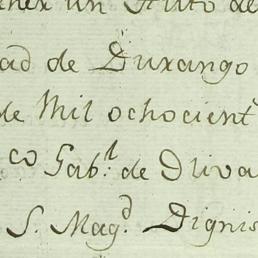 un Ynstituto de
ad de Durango
de Mil ochocient.ˢ
co Gab.ˡ de Oliva
S. Mag.ᵈ Dignis